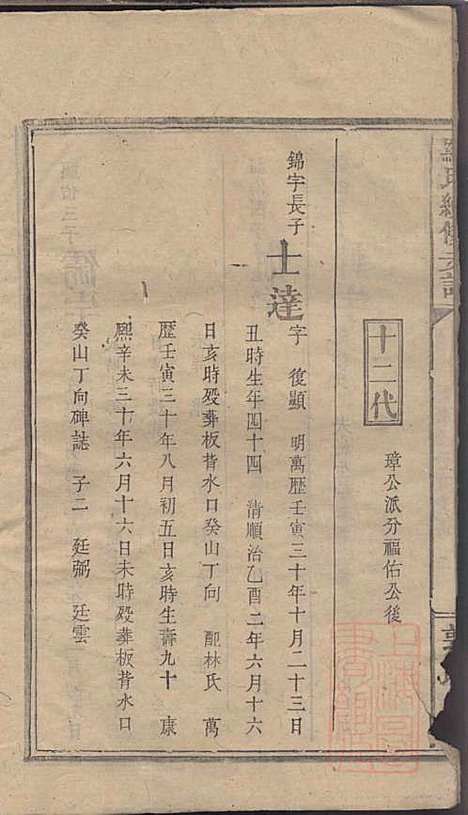 十二代
璋公派分福佑公後
錦宇長子
士達
字 復顯 明萬歷壬寅三十年十月二十三日
丑時生年四十四 清順治乙酉二年六月十六
日亥時殁葬板背水口癸山丁向 配林氏 萬
歷壬寅三十年八月初五日亥時生壽九十 康
熙辛未三十年六月十六日未時殁葬板背水口
癸山丁向碑誌 子二 廷弼 廷雲